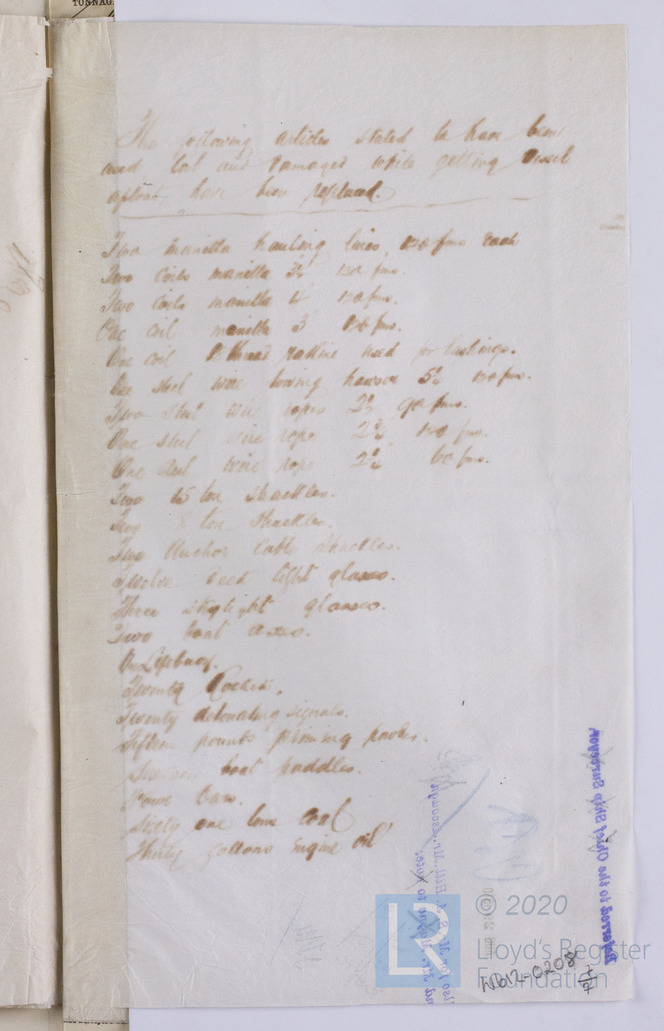 TONNAG
The following articles stated to have been
used lost and damaged while getting vessel
afloat, have been replaced.
Two manilla hauling lines, 120 fms each
Two coils manilla 3½ 120 fms.
Two coils manilla 4" 120 fms.
One coil manilla 3" 120 fms.
One coil thread ratline used for lashings.
One steel wire towing hawser 5½ 120 fms.
Two steel wire ropes 2½ 90 fms.
One steel wire rope 120 fms.
One steel wire rope 60 fms.
Two 15 ton shackles.
Two 8 ton shackles.
Two Anchor Cable shackles.
Twelve deck light glasses.
Three skylight glasses.
Two boat axes.
One Lifebuoy.
Twenty Rockets.
Twenty detonating signals.
Fifteen pounds priming powder.
boat paddles.
Four Oars.
Sixty one tons coal
Thirty gallons Engine oil
Referred to the Chief Ship Surveyor
© 2020
Lloyd's Register
Foundation
LR
WB12-0208